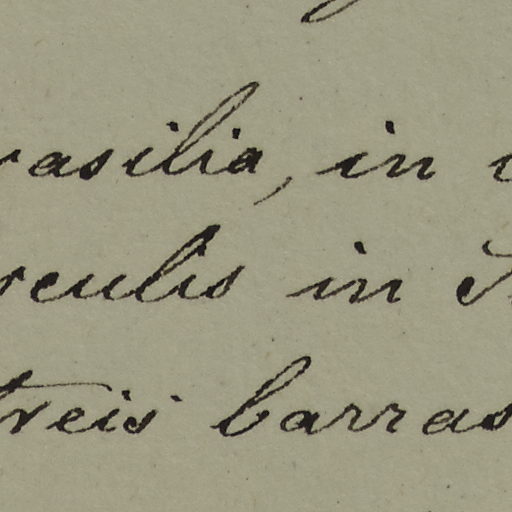 rasilia, in
rculis in
treis barras